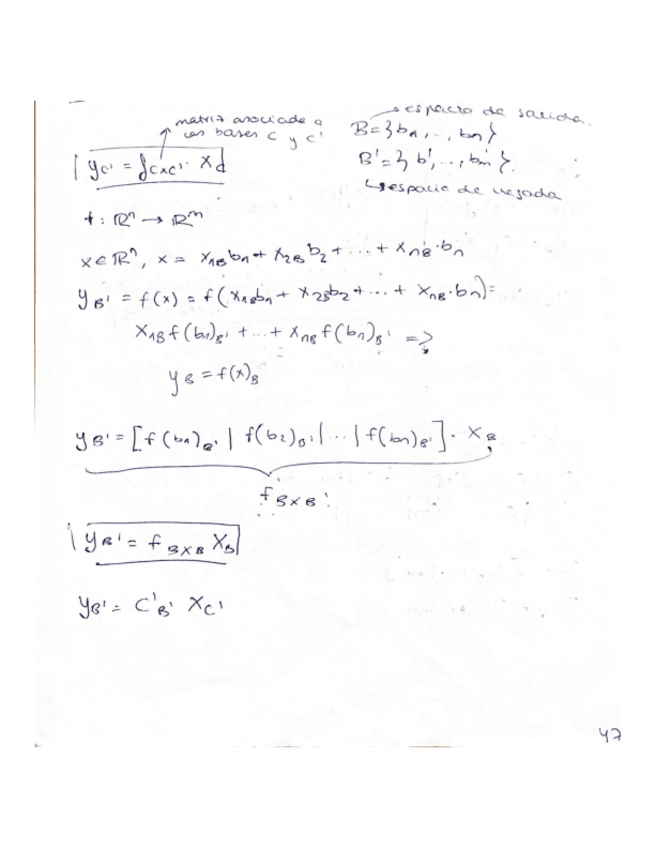 matriz asociada a
las bases C y C'
y_{C'} = f_{C×C'} · X_C
→ espacio de salida.
B = {b_1, ..., b_n}
B' = {b', ..., b_m'}.
↳ espacio de llegada
f : ℝ^n → ℝ^m
x ∈ ℝ^n, x = x_{1B} b_1 + x_{2B} b_2 + ... + x_{nB} · b_n
y_{B'} = f(x) = f(x_{1B} b_1 + x_{2B} b_2 + ... + x_{nB} · b_n) =
x_{1B} f(b_1)_{B'} + ... + x_{nB} f(b_n)_{B'} =>
y_B = f(x)_B
y_{B'} = [f(b_1)_{B'} | f(b_2)_{B'} | ... | f(b_n)_{B'}] · X_B
f_{B×B'}
y_{B'} = f_{B×B} X_B
y_{B'} = C'_{B'} X_{C'}
47